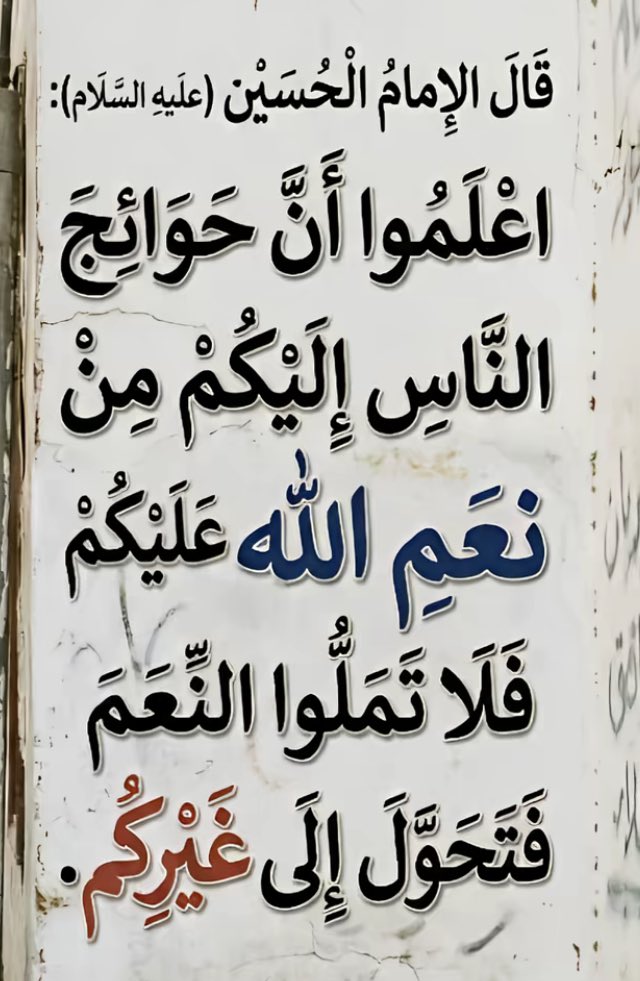 قَالَ الإِمامُ الْحُسَيْن (علَيهِ السَّلَام):
اعْلَمُوا أَنَّ حَوَائِجَ
النَّاسِ إِلَيْكُمْ مِنْ
نعَمِ اللّٰه عَلَيْكُمْ
فَلَا تَمَلُّوا النِّعَمَ
فَتَحَوَّلَ إِلَى غَيْرِكُم.